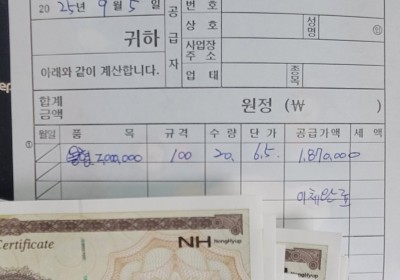 2025년 9월 5일
귀하
아래와 같이 계산합니다.
공급자
번호
상호 성명 ㊞
사업장 주소
업태 종목
합계금액 원정 (₩
월일 품목 규격 수량 단가 공급가액 세액
① 7,000,000 100 20 6.5 1,870,000
이체완료
Certificate
NH NongHyup